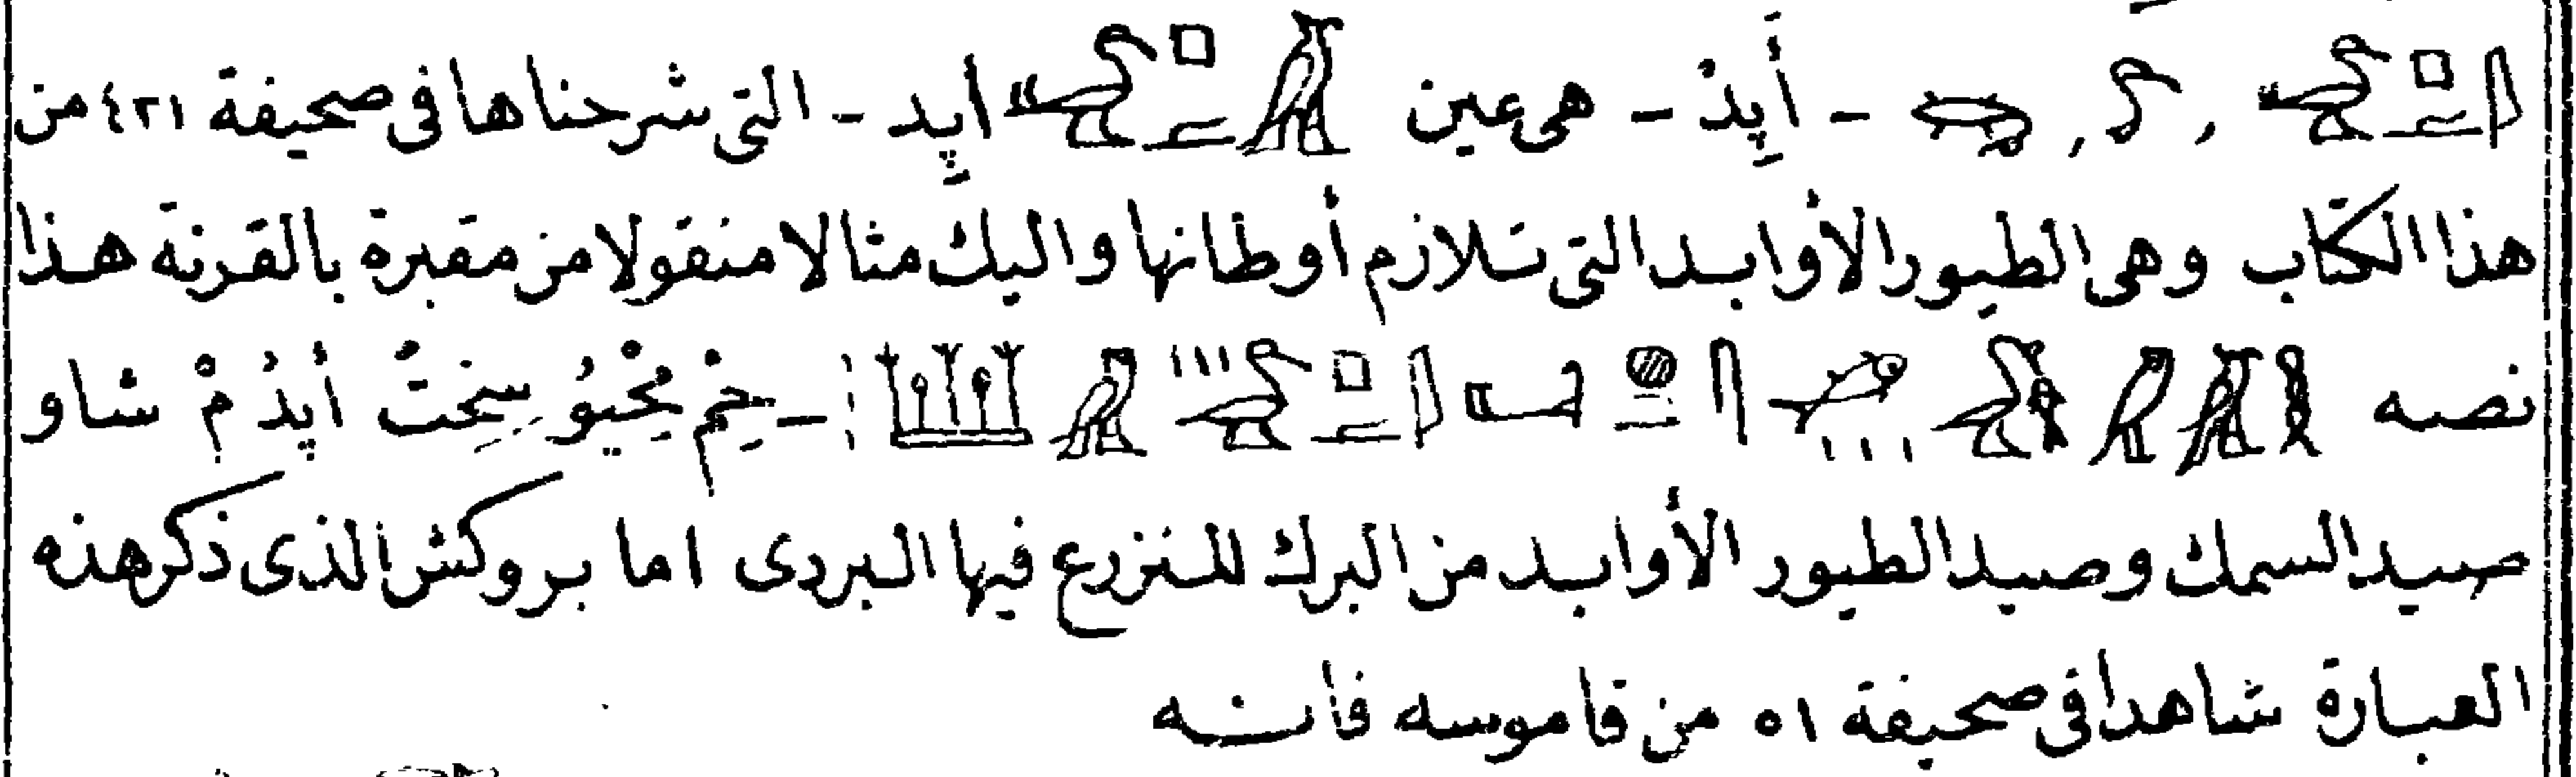 - أَپِدْ - هى عين اپد - التى شرحناها فى صحيفة ٤٢١ من
هذا الكتاب وهى الطيور الأوابد التى تلازم أوطانها واليك مثالا منقولا من مقبرة بالقرنة هذا
نصه - سِخِتْ أَپِدُ مْ شاو
صيد السمك وصيد الطيور الأوابد من البرك المنزرع فيها البردى اما بروكش الذى ذكر هذه
العبارة شاهدا فى صحيفة ٥١ من قاموسه فانه